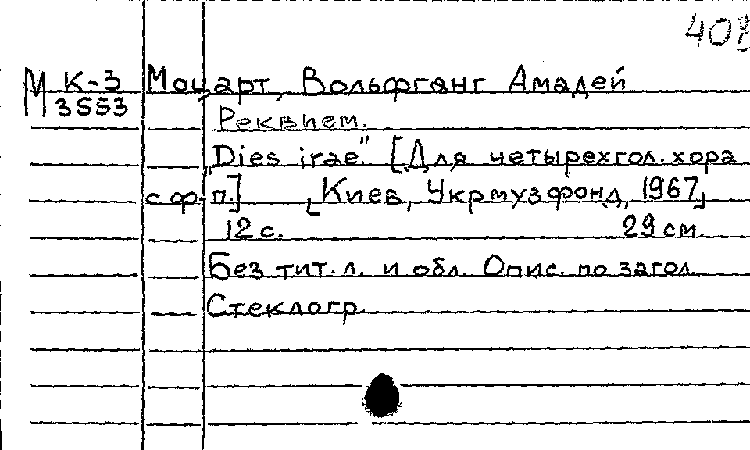 М К-3 Моцарт, Вольфганг Амадей
3553
Реквием.
"Dies irae" [Для четырехгол. хора
с ф-п.] [Киев, Укрмузфонд, 1967]
12 с. 29 см.
Без тит. л. и обл. Опис. по загол.
Стеклогр.